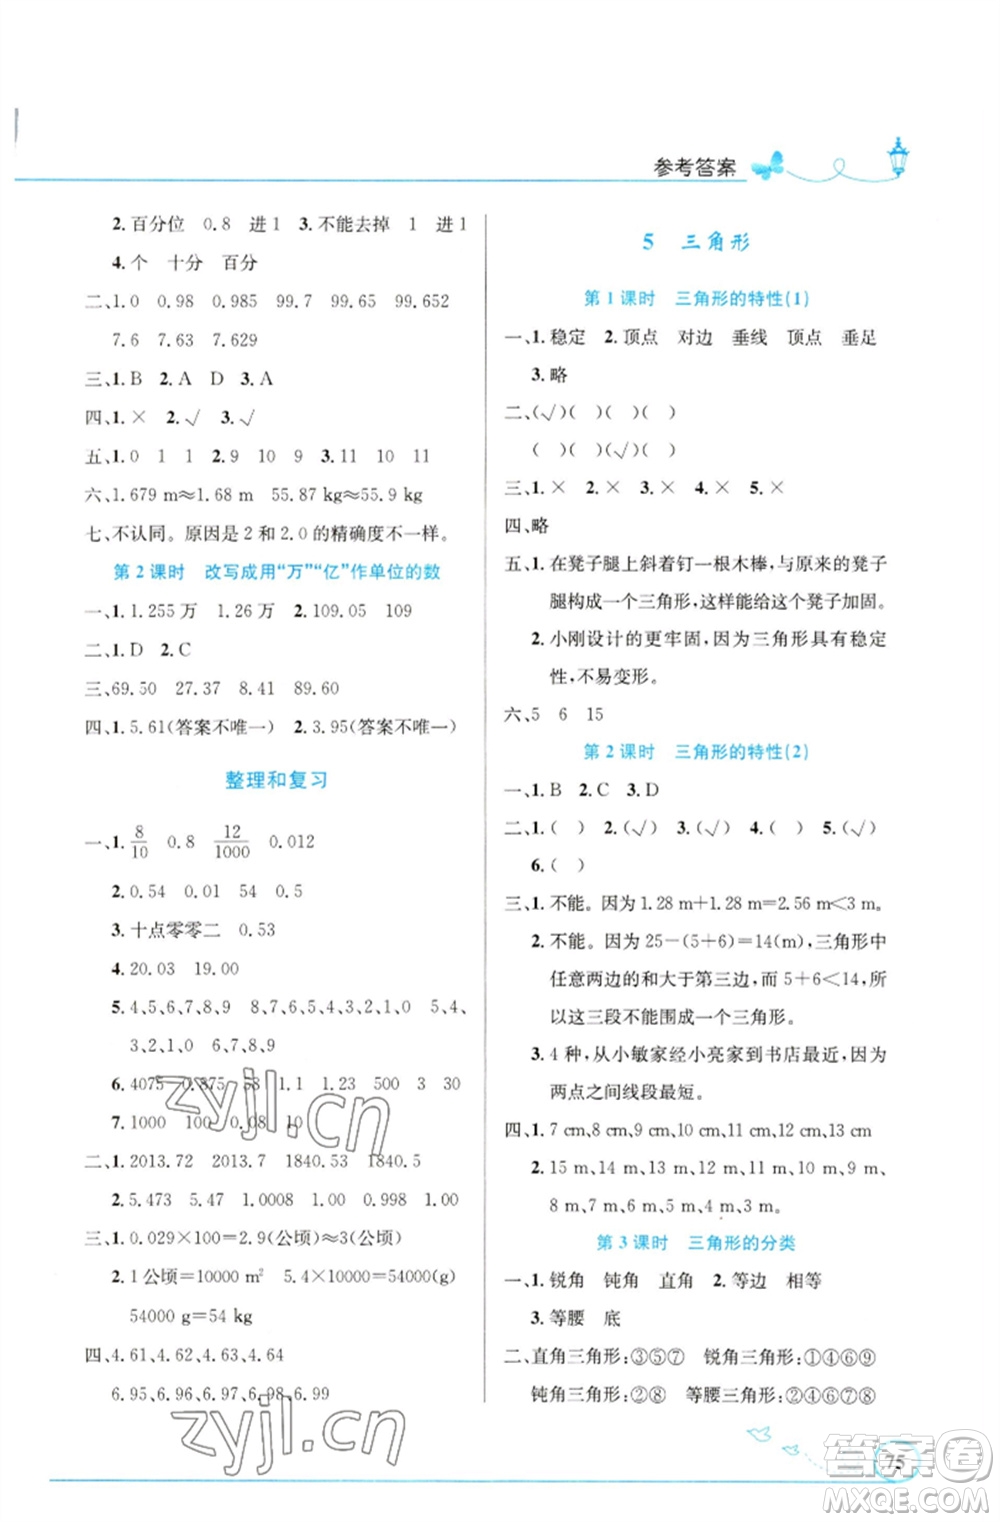 参考答案
2.百分位 0.8 进1 3.不能去掉 1 进1
4.个 十分 百分
二、1.0 0.98 0.985 99.7 99.65 99.652
7.6 7.63 7.629
三、1.B 2.A D 3.A
四、1.× 2.√ 3.√
五、1.0 1 1 2.9 10 9 3.11 10 11
六、1.679 m≈1.68 m 55.87 kg≈55.9 kg
七、不认同。原因是 2 和 2.0 的精确度不一样。
第 2 课时 改写成用“万”“亿”作单位的数
一、1.1.255 万 1.26 万 2.109.05 109
二、1.D 2.C
三、69.50 27.37 8.41 89.60
四、1.5.61(答案不唯一) 2.3.95(答案不唯一)
整理和复习
一、1.8/10 0.8 12/1000 0.012
2.0.54 0.01 54 0.5
3.十点零零二 0.53
4.20.03 19.00
5.4、5、6、7、8、9 8、7、6、5、4、3、2、1、0 5、4、
3、2、1、0 6、7、8、9
6.4075 0.875 58 1.1 1.23 500 3 50
7.1000 100 0.08 10
二、1.2013.72 2013.7 1840.53 1840.5
2.5.473 5.47 1.0008 1.00 0.998 1.0
三、1.0.029×100=2.9(公顷)≈3(公顷)
2.1公顷=10000 m² 5.4×10000=54000(g)
54000 g=54 kg
四、4.61、4.62、4.63、4.64
6.95、6.96、6.97、6.98、6.99
5 三角形
第 1 课时 三角形的特性(1)
一、1.稳定 2.顶点 对边 垂线 顶点 垂足
3.略
二、(√)( )( )( )
( )( )(√)( )
三、1.× 2.× 3.× 4.× 5.×
四、略
五、1.在凳子腿上斜着钉一根木棒，与原来的凳子
腿构成一个三角形，这样能给这个凳子加固。
2.小刚设计的更牢固，因为三角形具有稳定
性，不易变形。
六、5 6 15
第 2 课时 三角形的特性(2)
一、1.B 2.C 3.D
二、1.( ) 2.(√) 3.(√) 4.( ) 5.(√)
6.( )
三、1.不能。因为 1.28 m+1.28 m=2.56 m<3 m。
2.不能。因为 25-(5+6)=14(m)，三角形中
任意两边的和大于第三边，而 5+6<14，所
以这三段不能围成一个三角形。
3.4 种，从小敏家经小亮家到书店最近，因为
两点之间线段最短。
四、1.7 cm、8 cm、9 cm、10 cm、11 cm、12 cm
2.15 m、14 m、13 m、12 m、11 m、10 m、9 m、
8 m、7 m、6 m、5 m、4 m、3 m、2 m。
第 3 课时 三角形的分类
一、1.锐角 钝角 直角 2.等边 相等
3.等腰 底
二、直角三角形：③⑤⑦ 锐角三角形：①④⑥⑨
钝角三角形：②⑧ 等腰三角形：②④⑥⑧
75
zyjl.cn
zyjl.cn
答案圈
MXQE.COM